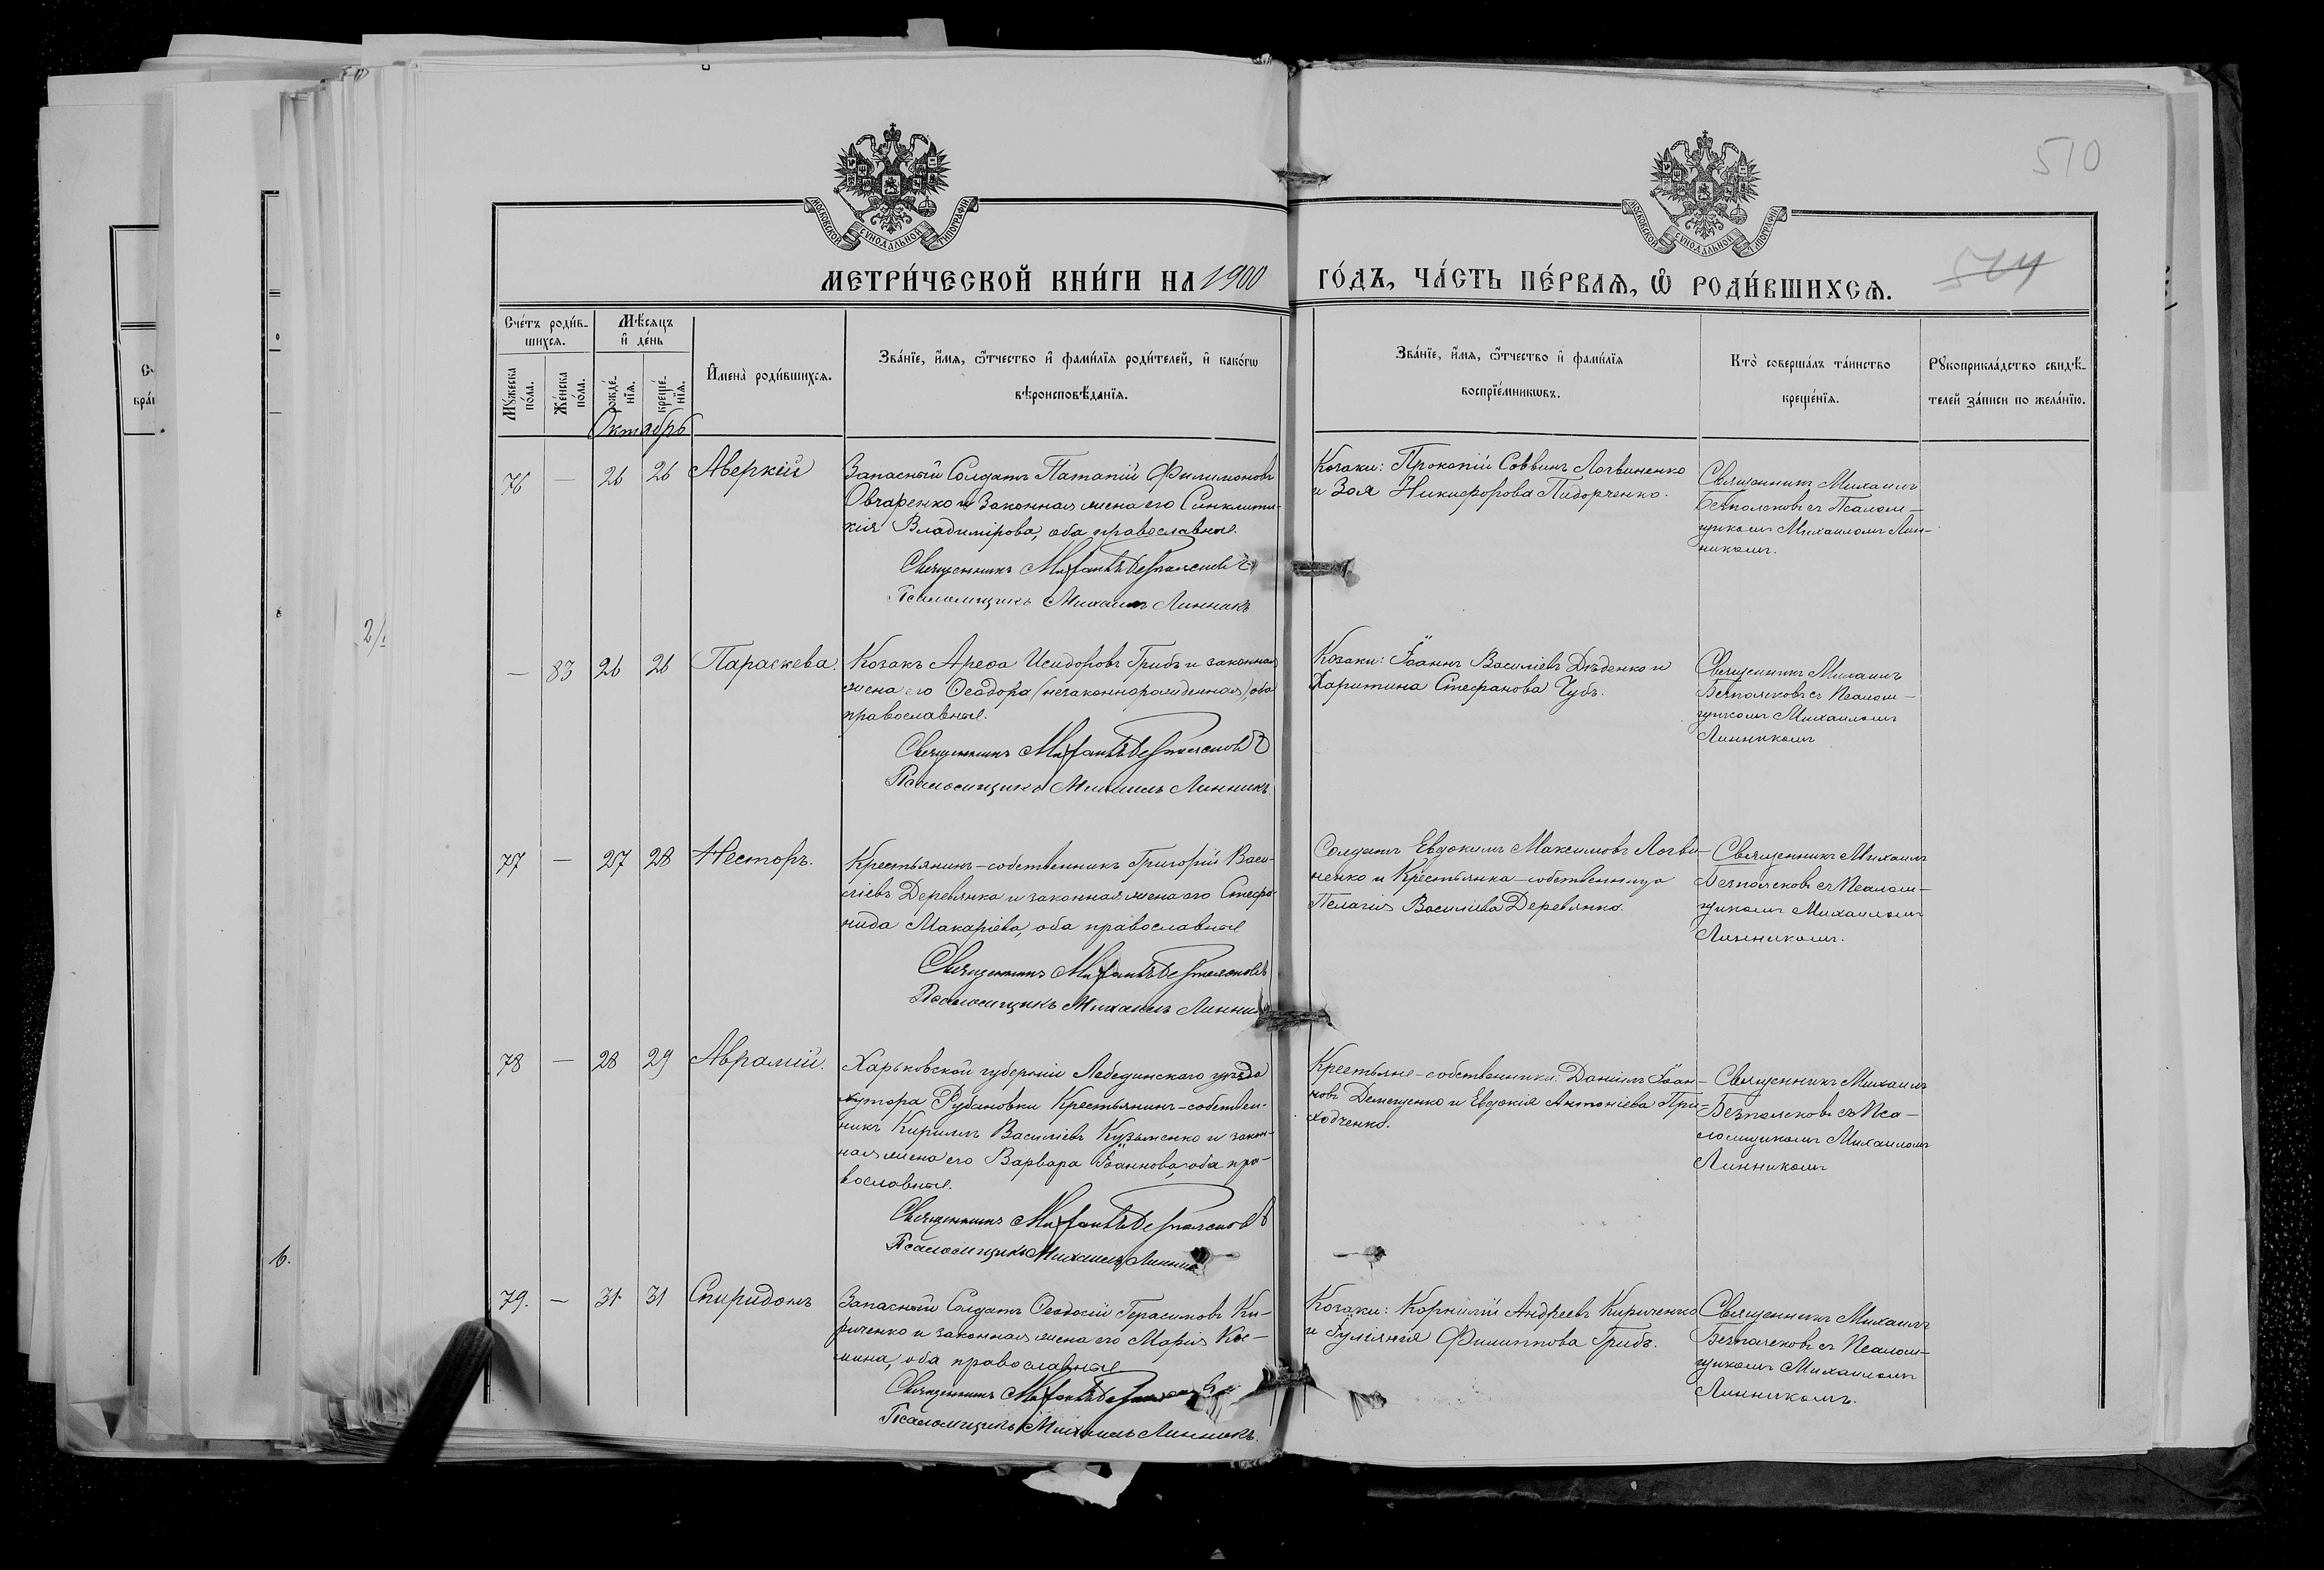 510
МОСКОВСКОЙ СУНОДАЛЬНОЙ ТИПОГРАФІИ
МОСКОВСКОЙ СУНОДАЛЬНОЙ ТИПОГРАФІИ
МЕТРИ́ЧЕСКОЙ КНИ́ГИ НА 1900
ГО́ДЪ, ЧА́СТЬ ПЕ́РВАѦ, Ѡ҆ РОДИ́ВШИХСѦ.
514
Сче́тъ роди́в-
шихсѧ.
Мѣ́сѧцъ
и҆ де́нь
И҆мена̀ роди́вшихсѧ.
Зва́нїе, и҆́мѧ, ѻ҆́тчество и҆ фами́лїѧ роди́телей, и҆ како́гѡ
вѣроисповѣ́данїѧ.
Зва́нїе, и҆́мѧ, ѻ҆́тчество и҆ фами́лїѧ
воспрїе́мникѡвъ.
Кто̀ соверша́лъ та́инство
креще́нїѧ.
Рꙋкоприкла́дство свидѣ́-
телей за́писи по жела́нїю.
Мꙋ́жеска
по́ла.
Же́нска
по́ла.
рожде́-
нїѧ.
креще́-
нїѧ.
Октябрь
76 — 26 26 Аверкій
Запасный Солдатъ Патапій Филимоновъ
Овчаренко и Законная жена его Синклити-
кія Владимірова, оба православные.
Священникъ Михаилъ Безпалсковъ
Псаломщикъ Михаилъ Линникъ
Козаки: Прокопій Саввинъ Логвиненко
и Зоя Никифорова Пидорченко.
Священникъ Михаилъ
Безполсковъ съ Псалом-
щикомъ Михаиломъ Лин-
никомъ.
— 83 26 26 Параскева.
Козакъ Арефа Исидоровъ Грибъ и законная
жена его Ѳеодора (незаконнорожденная), оба
православные.
Священникъ Михаилъ Безпалсковъ
Псаломщикъ Михаилъ Линникъ.
Козаки: Іоаннъ Василіевъ Дѣденко и
Харитина Стефанова Чубъ.
Священникъ Михаилъ
Безполсковъ съ Псалом-
щикомъ Михаиломъ
Линникомъ
77 — 27 28 Несторъ.
Крестьянинъ-собственникъ Григорій Васи-
ліевъ Деревянка и законная жена его Стефа-
нида Макаріева, оба православные
Священникъ Михаилъ Безпалсковъ
Псаломщикъ Михаилъ Линникъ
Солдатъ Евдокимъ Максимовъ Логви-
ненко и Крестьянка-собственница
Пелагія Василіева Деревянко.
Священникъ Михаилъ
Безполсковъ съ Псалом-
щикомъ Михаиломъ
Линникомъ.
78 — 28 29 Аврамій.
Харьковской губерніи Лебединскаго уѣзда
хутора Рубановки Крестьянинъ-собствен-
никъ Кириллъ Василіевъ Кузьменко и закон-
ная жена его Варвара Іоаннова, оба пра-
вославные.
Священникъ Михаилъ Безпалсковъ
Псаломщикъ Михаилъ Линникъ
Крестьяне-собственники: Даніилъ Іоан-
новъ Демещенко и Евдокія Антоніева При-
ходченко.
Священникъ Михаилъ
Безполсковъ съ Пса-
ломщикомъ Михаиломъ
Линникомъ
79. — 31 31 Спиридонъ
Запасный Солдатъ Ѳеодосій Герасимовъ Ки-
риченко и законная жена его Марія Кос-
мина, оба православные
Священникъ Михаилъ Безпалсковъ
Псаломщикъ Михаилъ Линникъ.
Козаки: Корнилій Андреевъ Кириченко
и Іуліанія Филиппова Грибъ.
Священникъ Михаилъ
Безполсковъ съ Псалом-
щикомъ Михаиломъ
Линникомъ.